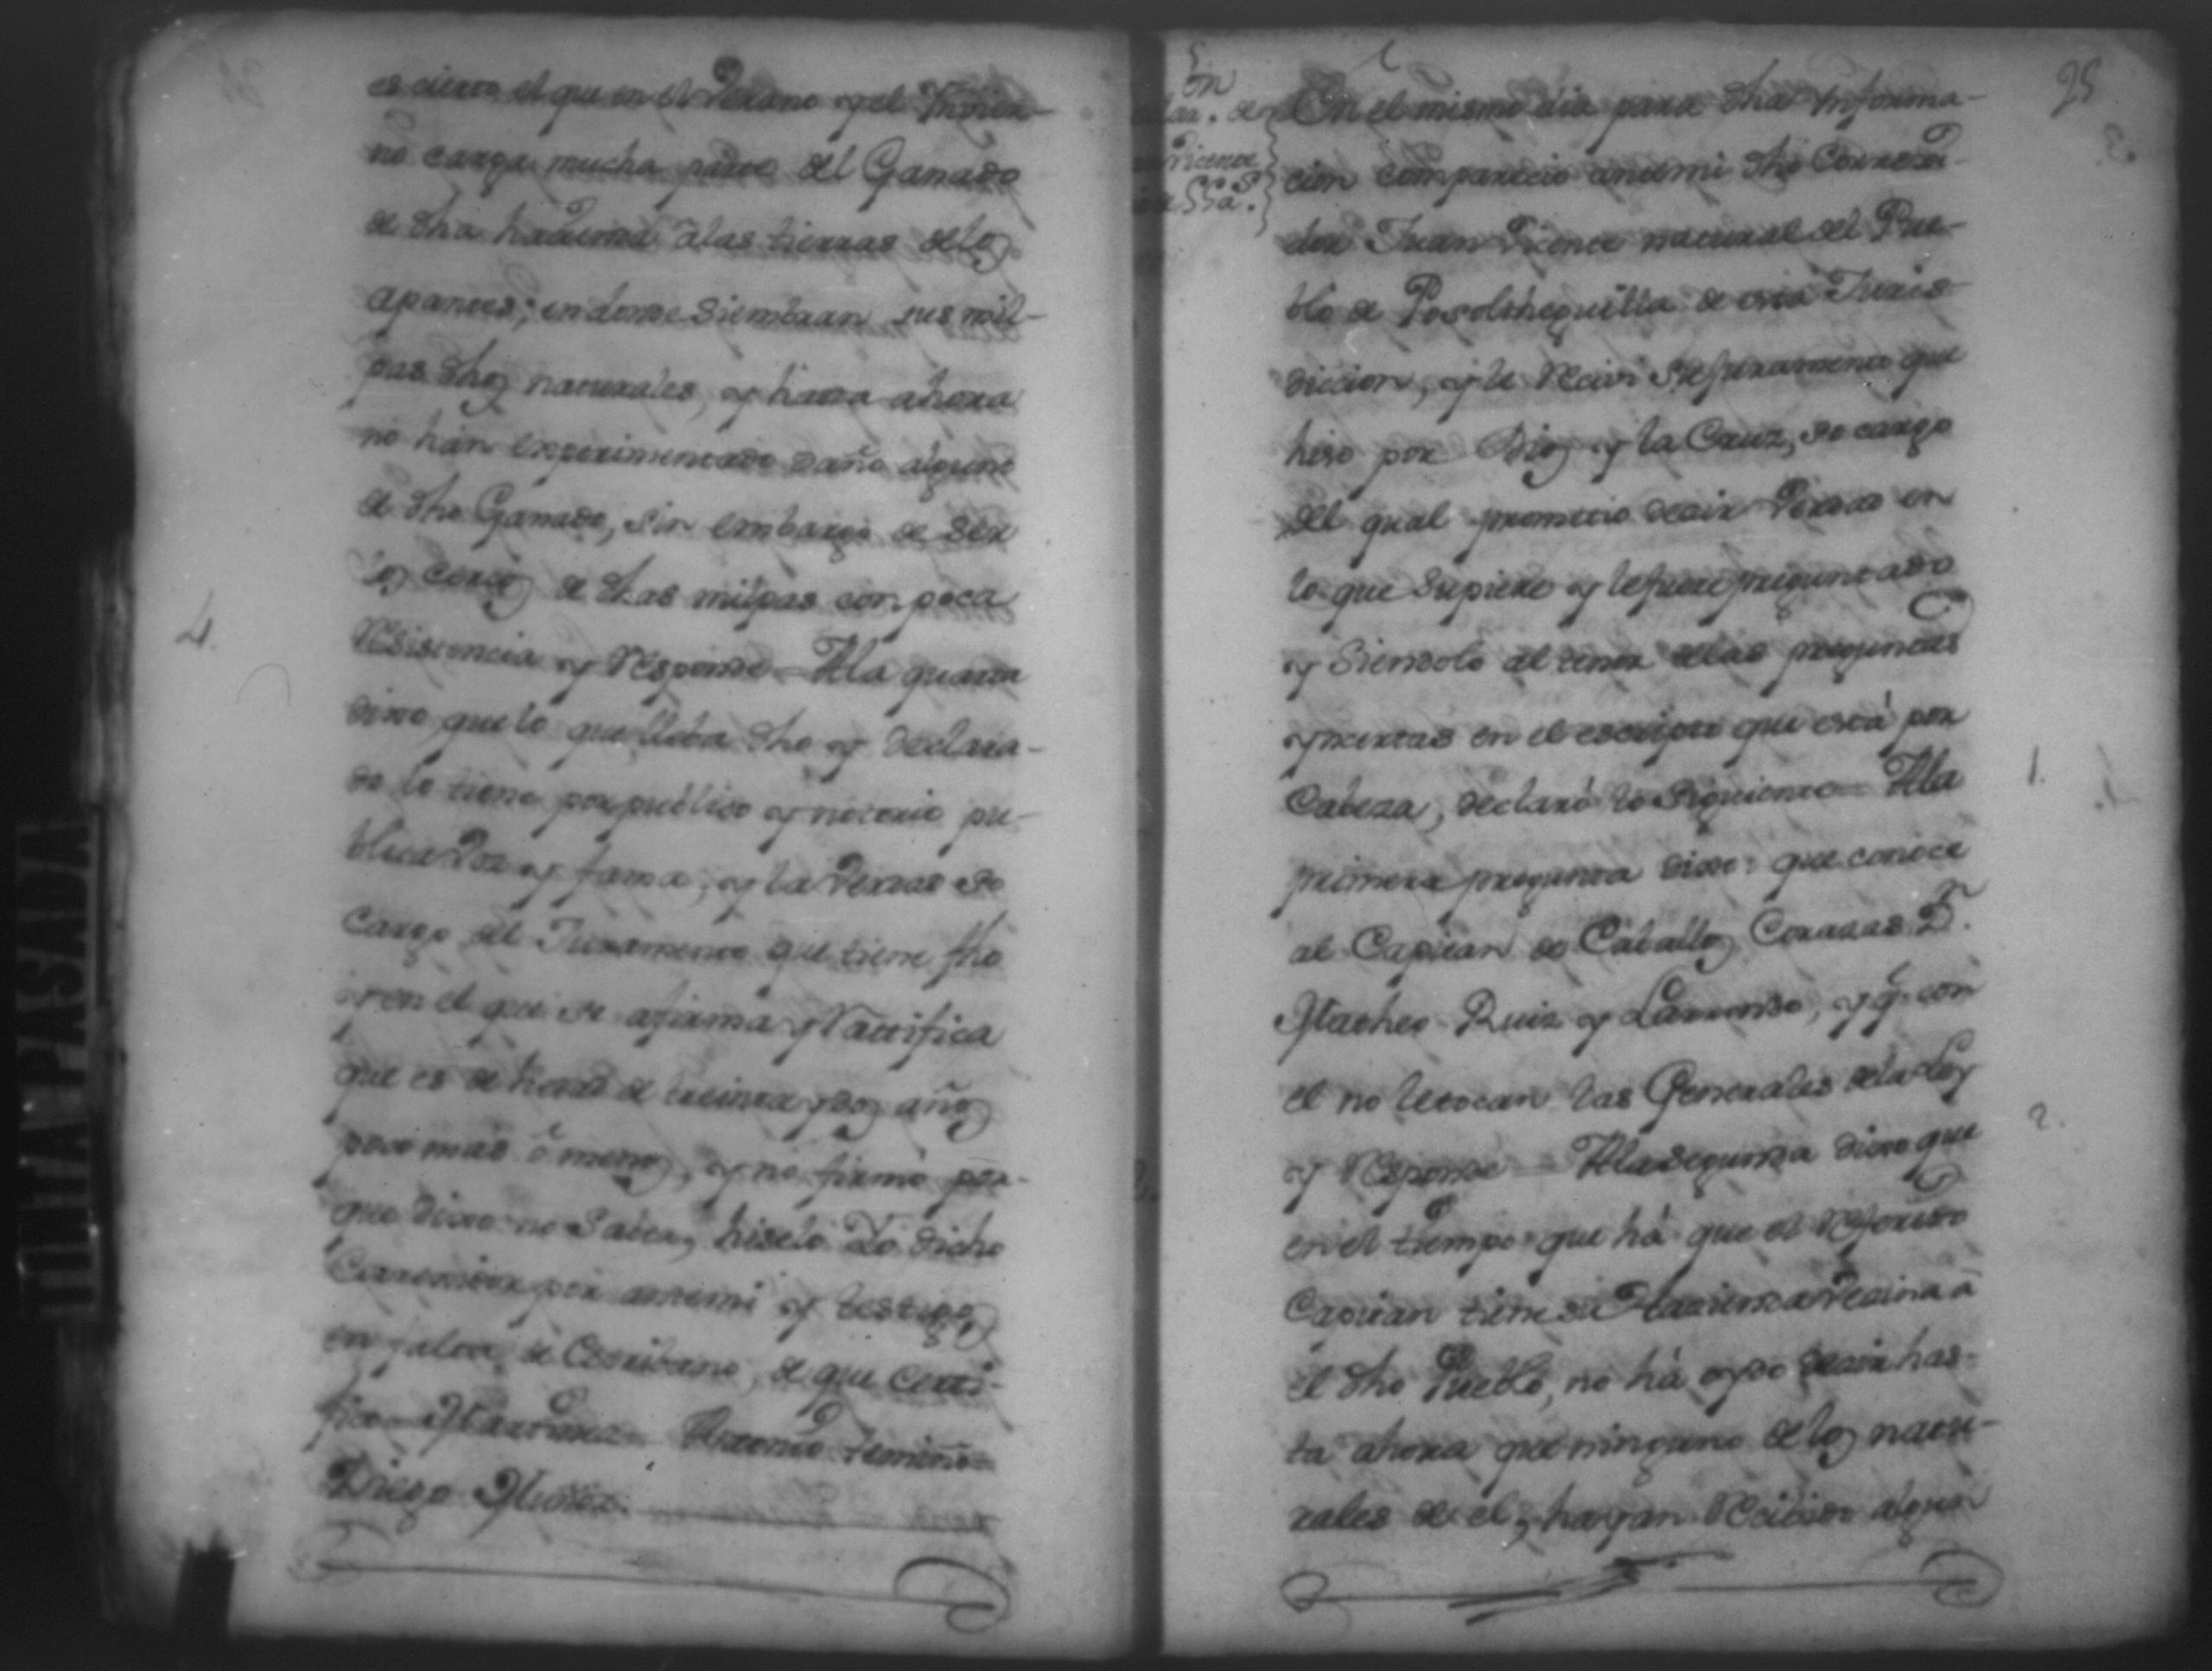 es cierto el que en el Verano y el Invier-
no carga mucha parte del Ganado
de dha hazienda a las tierras de los
apantes; en donde siembran sus mil-
pas dhos naturales, y hasta ahora
no han experimentado daño alguno
de dho Ganado, sin embargo de ser
los cercos de dhas milpas con poca
Resistencia y Responde = A la quarta
4.
dixo que lo que lleba dho y declara-
do lo tiene por publico y notorio pu-
blica voz y fama, y la verdad so
cargo del Juramento que tiene fho
y en el que se afirma y Ratifica
que es de hedad de treinta y dos años
poco mas ò menos, y no firmò por-
que dixo no saber, hiselo Yo dicho
Corregidor por antemi y testigos
en falta de Escribano, de que certi-
fico = Antonio
Diego Muñoz
25
on
Vicente
En el mismo dia para dha Informa-
cion comparecio antemi dho Corregi-
dor Juan Vicente natural del Pue-
blo de Posolteguilla de esta Juris-
diccion, y le Recivi Juramento que
hiso por Dios y la Cruz, so cargo
del qual prometio decir Verdad en
lo que supiere y le fuere preguntado
y siendolo al tenor de las preguntas
ynsertas en el escripto que está por
Cabeza, declaró lo siguiente = A la
1.
primera pregunta dixo: que conoce
al Capitan de Caballos Corazas Dn.
Matheo Ruiz y y q. con
el no le tocan las Generales de la Ley
y Responde = A la segunda dixo que
2.
en el tiempo que há que el Referido
Capitan tiene su Hazienda Vecina a
el dho Pueblo, no há oydo decir has-
ta ahora que ninguno de los natu-
rales de el, hayan Recibido algun